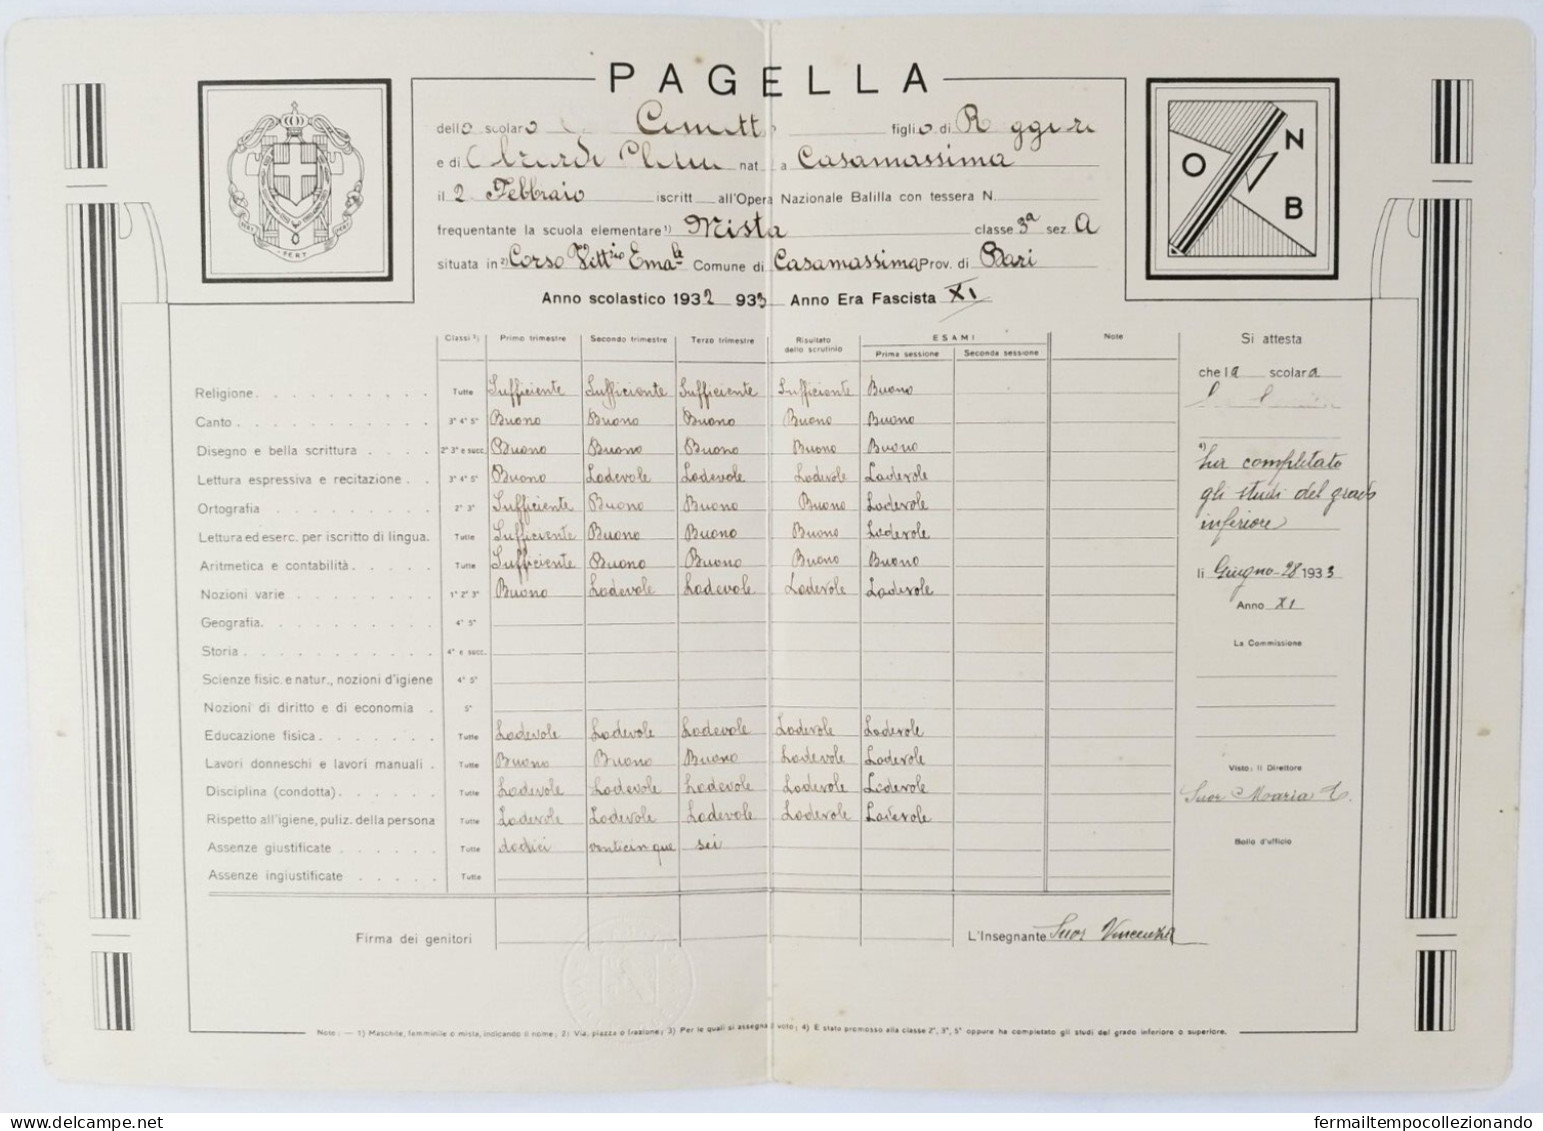 PAGELLA
dello scolaro figlio di
e di nat a Casamassima
il 2 Febbraio iscritt all'Opera Nazionale Balilla con tessera N.
frequentante la scuola elementare 1) Mista classe 3ª sez. A
situata in 2) Corso Vittrio Emale Comune di Casamassima Prov. di Bari
Anno scolastico 1932 933 Anno Era Fascista XI
O N B
FERT
Classi 3) Primo trimestre Secondo trimestre Terzo trimestre Risultato dello scrutinio ESAMI Note
Prima sessione Seconda sessione
Religione Tutte Sufficiente Sufficiente Sufficiente Sufficiente Buono
Canto 3° 4° 5° Buono Buono Buono Buono Buono
Disegno e bella scrittura 2° 3° e succ. Buono Buono Buono Buono Buono
Lettura espressiva e recitazione 3° 4° 5° Buono Lodevole Lodevole Lodevole Lodevole
Ortografia 2° 3° Sufficiente Buono Buono Buono Lodevole
Lettura ed eserc. per iscritto di lingua. Tutte Sufficiente Buono Buono Buono Lodevole
Aritmetica e contabilità Tutte Sufficiente Buono Buono Buono Buono
Nozioni varie 1° 2° 3° Buono Lodevole Lodevole Lodevole Lodevole
Geografia 4° 5°
Storia 4° e succ.
Scienze fisic. e natur., nozioni d'igiene 4° 5°
Nozioni di diritto e di economia 5°
Educazione fisica Tutte Lodevole Lodevole Lodevole Lodevole Lodevole
Lavori donneschi e lavori manuali Tutte Buono Buono Buono Lodevole Lodevole
Disciplina (condotta) Tutte Lodevole Lodevole Lodevole Lodevole Lodevole
Rispetto all'igiene, puliz. della persona Tutte Lodevole Lodevole Lodevole Lodevole Lodevole
Assenze giustificate Tutte dodici venticinque sei
Assenze ingiustificate Tutte
Firma dei genitori L'Insegnante Suor Vincenza
Si attesta
che la scolara
4) ha completato
gli studi del grado
inferiore
li Giugno-28 1933
Anno XI
La Commissione
Visto: Il Direttore
Suor Maria
Bollo d'ufficio
Note: — 1) Maschile, femminile o mista, indicando il nome; 2) Via, piazza o frazione; 3) Per le quali si assegna il voto; 4) È stato promosso alla classe 2°, 3°, 5° oppure ha completato gli studi del grado inferiore o superiore.
delcampe.net
fermailtempocollezionando